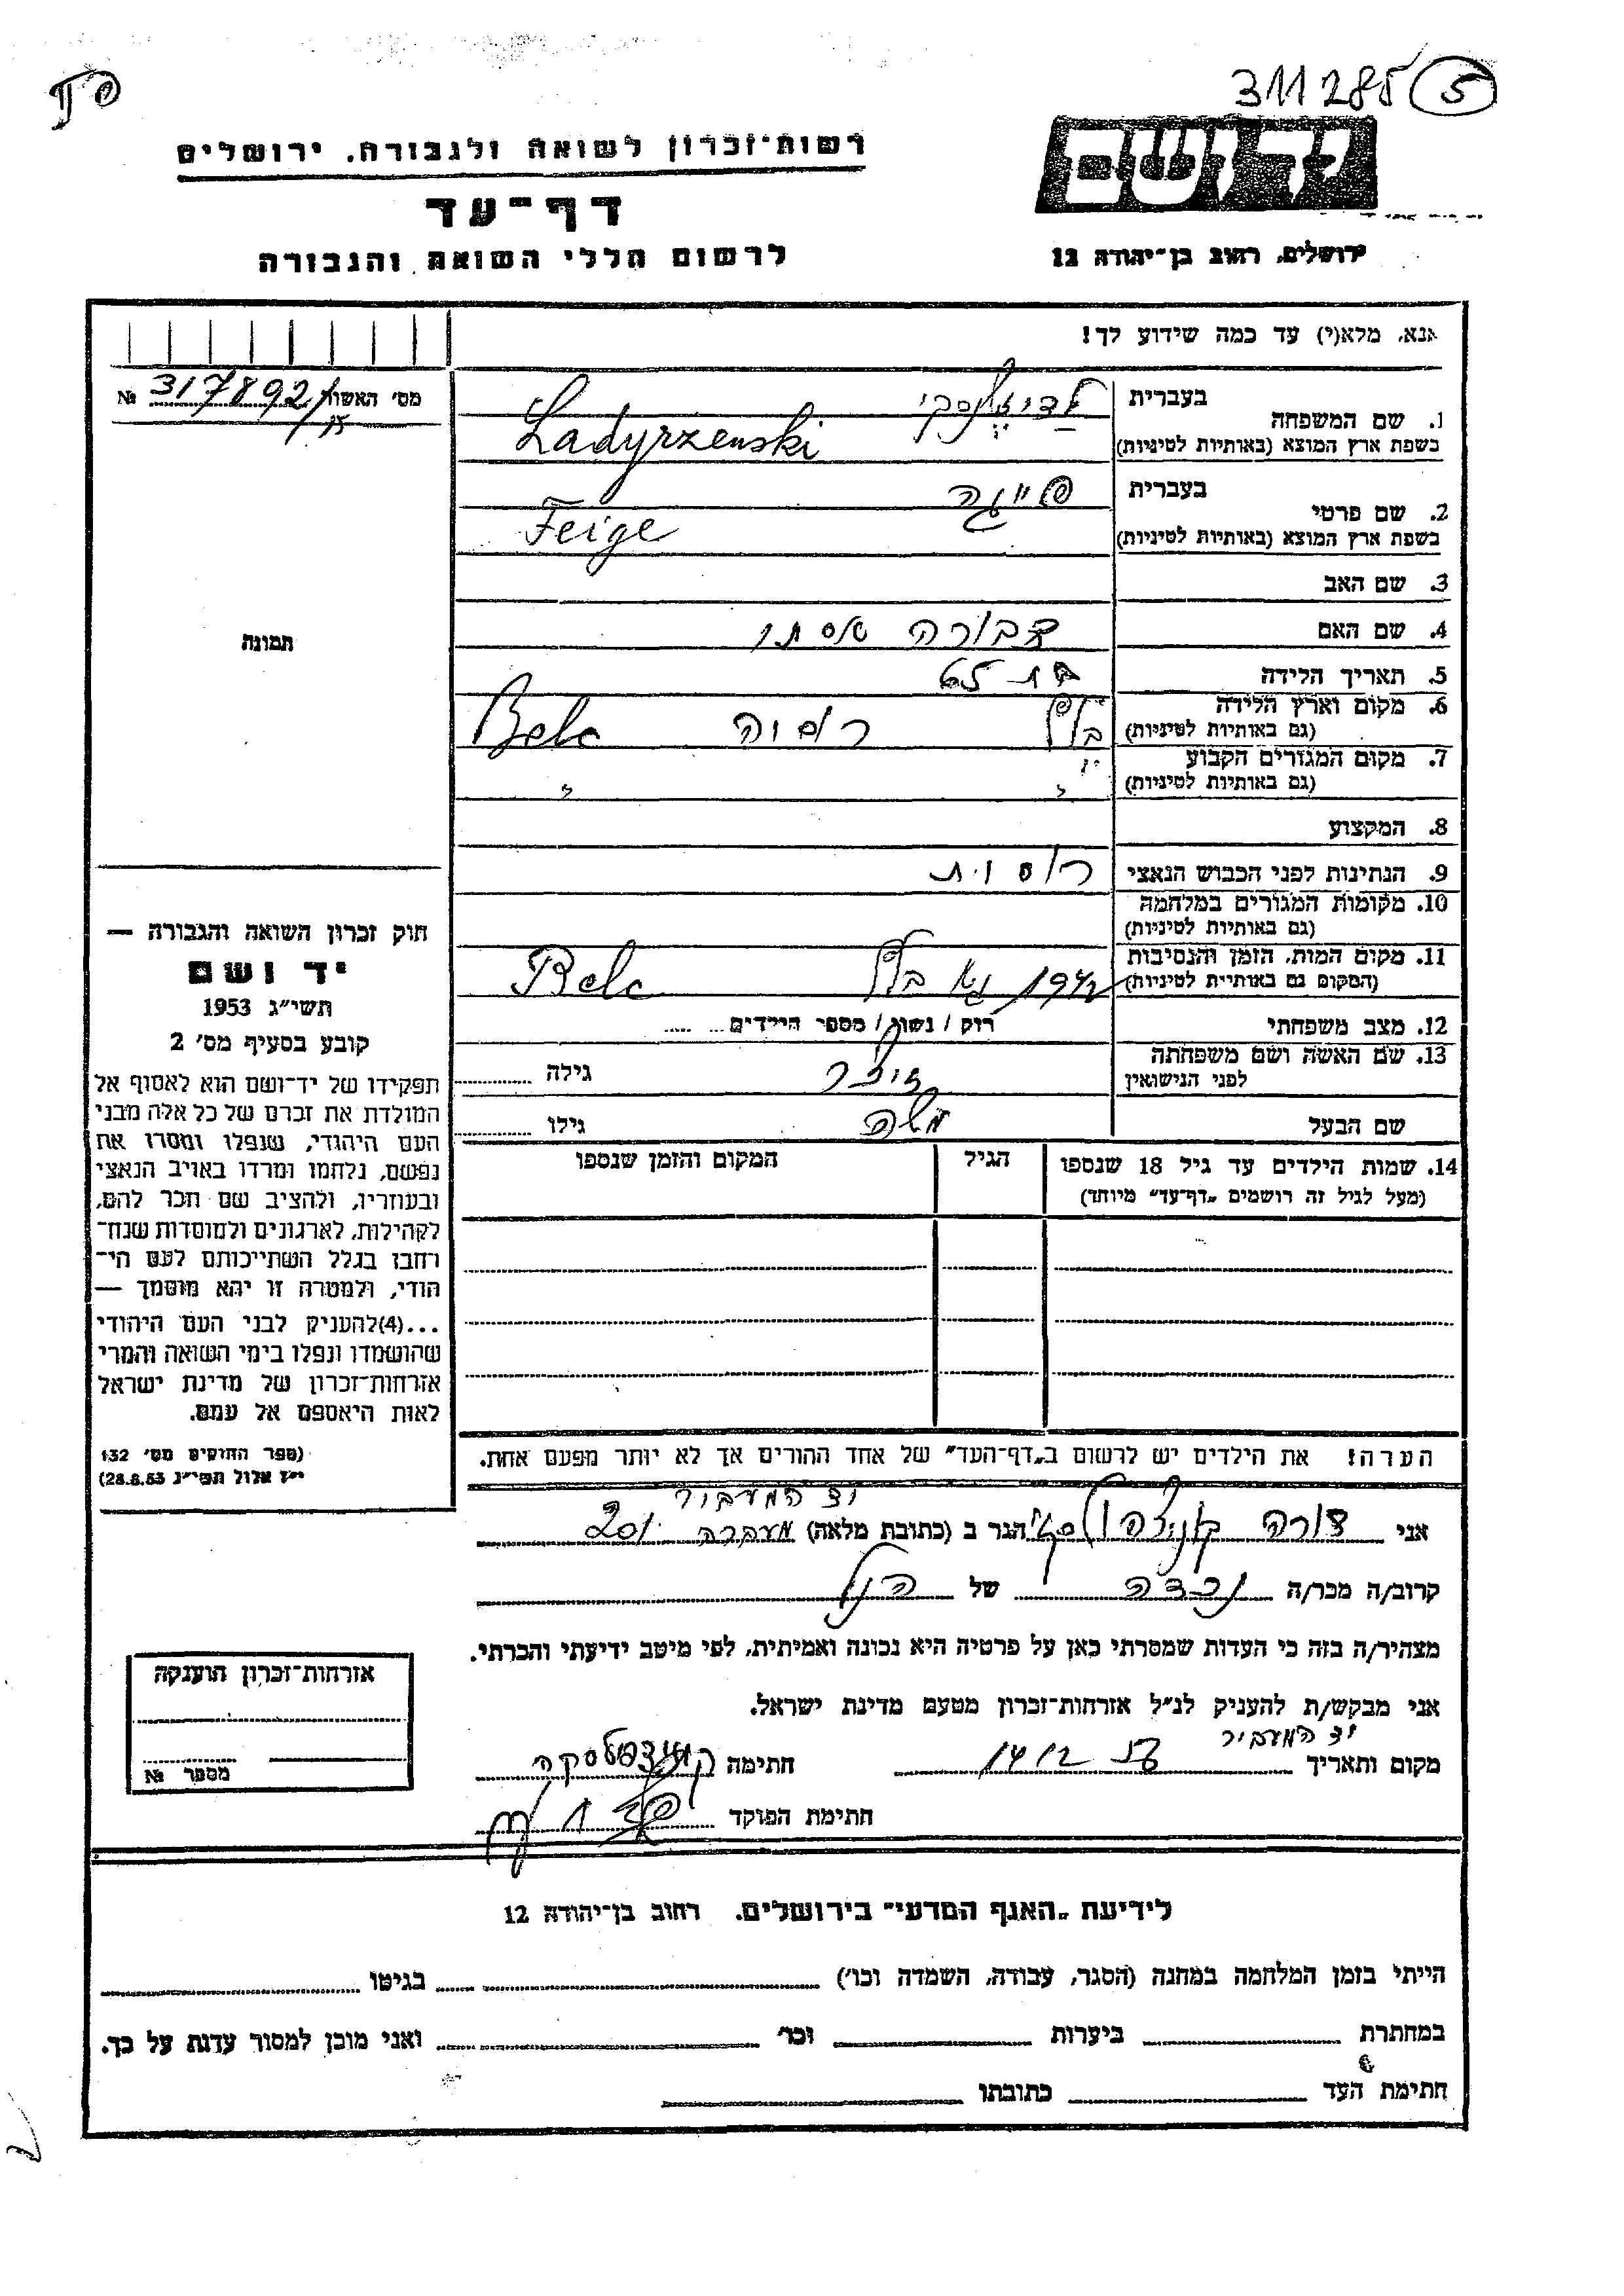 311285 5
רשות־זכרון לשואה ולגבורה. ירושלים
יד ושם
דף־עד
לרשום חללי השואה והגבורה
ירושלים, רחוב בן־יהודה 12
אנא, מלא(י) עד כמה שידוע לך!
מס׳ האשור № 317892/
1. שם המשפחה
בעברית
בשפת ארץ המוצא (באותיות לטיניות) Ladyrzenski
2. שם פרטי
בעברית פייגה
בשפת ארץ המוצא (באותיות לטיניות) Feige
3. שם האב
4. שם האם דבורה אסתר
תמונה
5. תאריך הלידה בת 65
6. מקום וארץ הלידה
(גם באותיות לטיניות) רוסיה Bele
7. מקום המגורים הקבוע
(גם באותיות לטיניות) " "
8. המקצוע
9. הנתינות לפני הכבוש הנאצי רוסית
10. מקומות המגורים במלחמה
(גם באותיות לטיניות)
11. מקום המות, הזמן והנסיבות
(המקום גם באותיות לטיניות) 1942 Bele
12. מצב משפחתי רוק / נשוי / מספר הילדים
13. שם האשה ושם משפחתה
לפני הנישואין גילה
שם הבעל משה גילו
14. שמות הילדים עד גיל 18 שנספו
(מעל לגיל זה רושמים „דף־עד” מיוחד)
הגיל
המקום והזמן שנספו
חוק זכרון השואה והגבורה —
יד ושם
תשי״ג 1953
קובע בסעיף מס׳ 2
תפקידו של יד־ושם הוא לאסוף אל
המולדת את זכרם של כל אלה מבני
העם היהודי, שנפלו ומסרו את
נפשם, נלחמו ומרדו באויב הנאצי
ובעוזריו, ולהציב שם וזכר להם,
לקהילות, לארגונים ולמוסדות שנח־
רבו בגלל השתייכותם לעם הי־
הודי, ולמטרה זו יהא מוסמך —
...(4)להעניק לבני העם היהודי
שהושמדו ונפלו בימי השואה והמרי
אזרחות־זכרון של מדינת ישראל
לאות היאספם אל עמם.
(ספר החוקים מס׳ 132
י״ז אלול תשי״ג 28.8.53)
הערה! את הילדים יש לרשום ב„דף־העד” של אחד ההורים אך לא יותר מפעם אחת.
יד המעביר
אני הגר ב (כתובת מלאה) מעברה 201
קרוב/ה מכר/ה נכדה של הנ״ל
מצהיר/ה בזה כי העדות שמסרתי כאן על פרטיה היא נכונה ואמיתית, לפי מיטב ידיעתי והכרתי.
אני מבקש/ת להעניק לנ״ל אזרחות־זכרון מטעם מדינת ישראל.
יד המעביר
מקום ותאריך חתימה
חתימת הפוקד
אזרחות־זכרון הוענקה
מספר №
לידיעת „האגף המדעי” בירושלים. רחוב בן־יהודה 12
הייתי בזמן המלחמה במחנה (הסגר, עבודה, השמדה וכו׳) בגיטו
במחתרת ביערות וכו׳ ואני מוכן למסור עדות על כך.
חתימת העד כתובתו